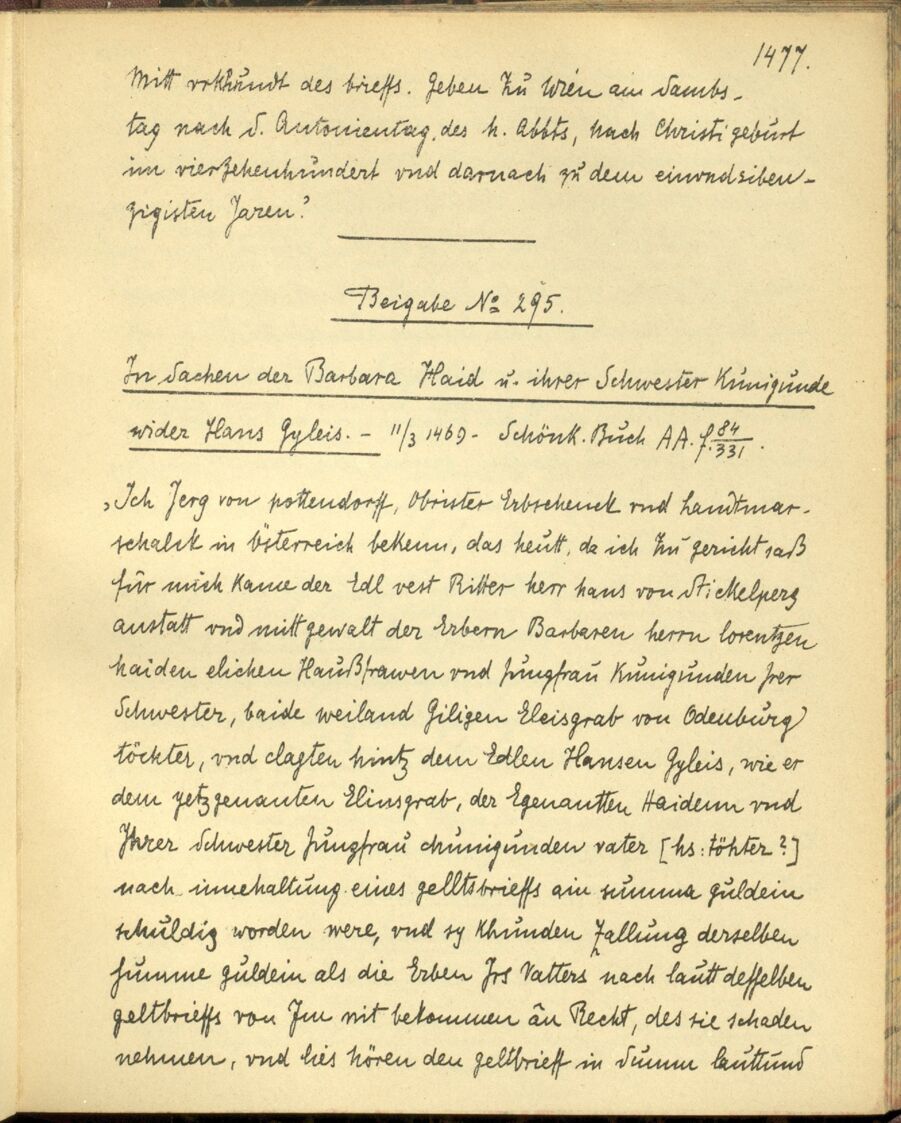 1477.
Mitt vrkhundt des brieffs. Geben zu Wien am Sambs-
tag nach S. Antonientag des h. Abbts, nach Christi geburt
im vierzehenhundert vnd darnach zu dem einvndsiben-
zigisten Jaren."
Beigabe No 295.
In Sachen der Barbara Haid u. ihrer Schwester Kunigunde
wider Hans Gyleis. - 11/3 1469 - Schönk. Buch AA. f. 84/331.
"Ich Jerg von pottendorff, Obrister Erbschenck vnd Landtmar-
schalck in Österreich bekenn, das heutt, da ich zu gericht saß
für mich kame der Edl vest Ritter herr hans von Stickelperg
anstatt vnd mitt gewalt der Erbern Barbaren herrn lorentzen
haiden elichen Haußfrawen vnd Jungfrau Kunigunden Irer
Schwester, baide weiland Giligen Eleisgrab von Odenburg
töchter, vnd clagten hintz dem Edlen Hansen Gyleis, wie er
dem yetzgenanten Elinsgrab, der Egenantten Haidenn vnd
Ihrer Schwester Jungfrau chunigunden vater [hs: töhter?]
nach innehaltung eines gelltsbrieffs ain summa guldein
schuldig worden were, vnd sy khunden Zallung derselben
summe guldein als die Erben Irs Vatters nach lautt desselben
geltbrieffs von Im nit bekommen ân Recht, des sie schaden
nehmen, vnd lies hören den geltbrieff in Summ lauttund